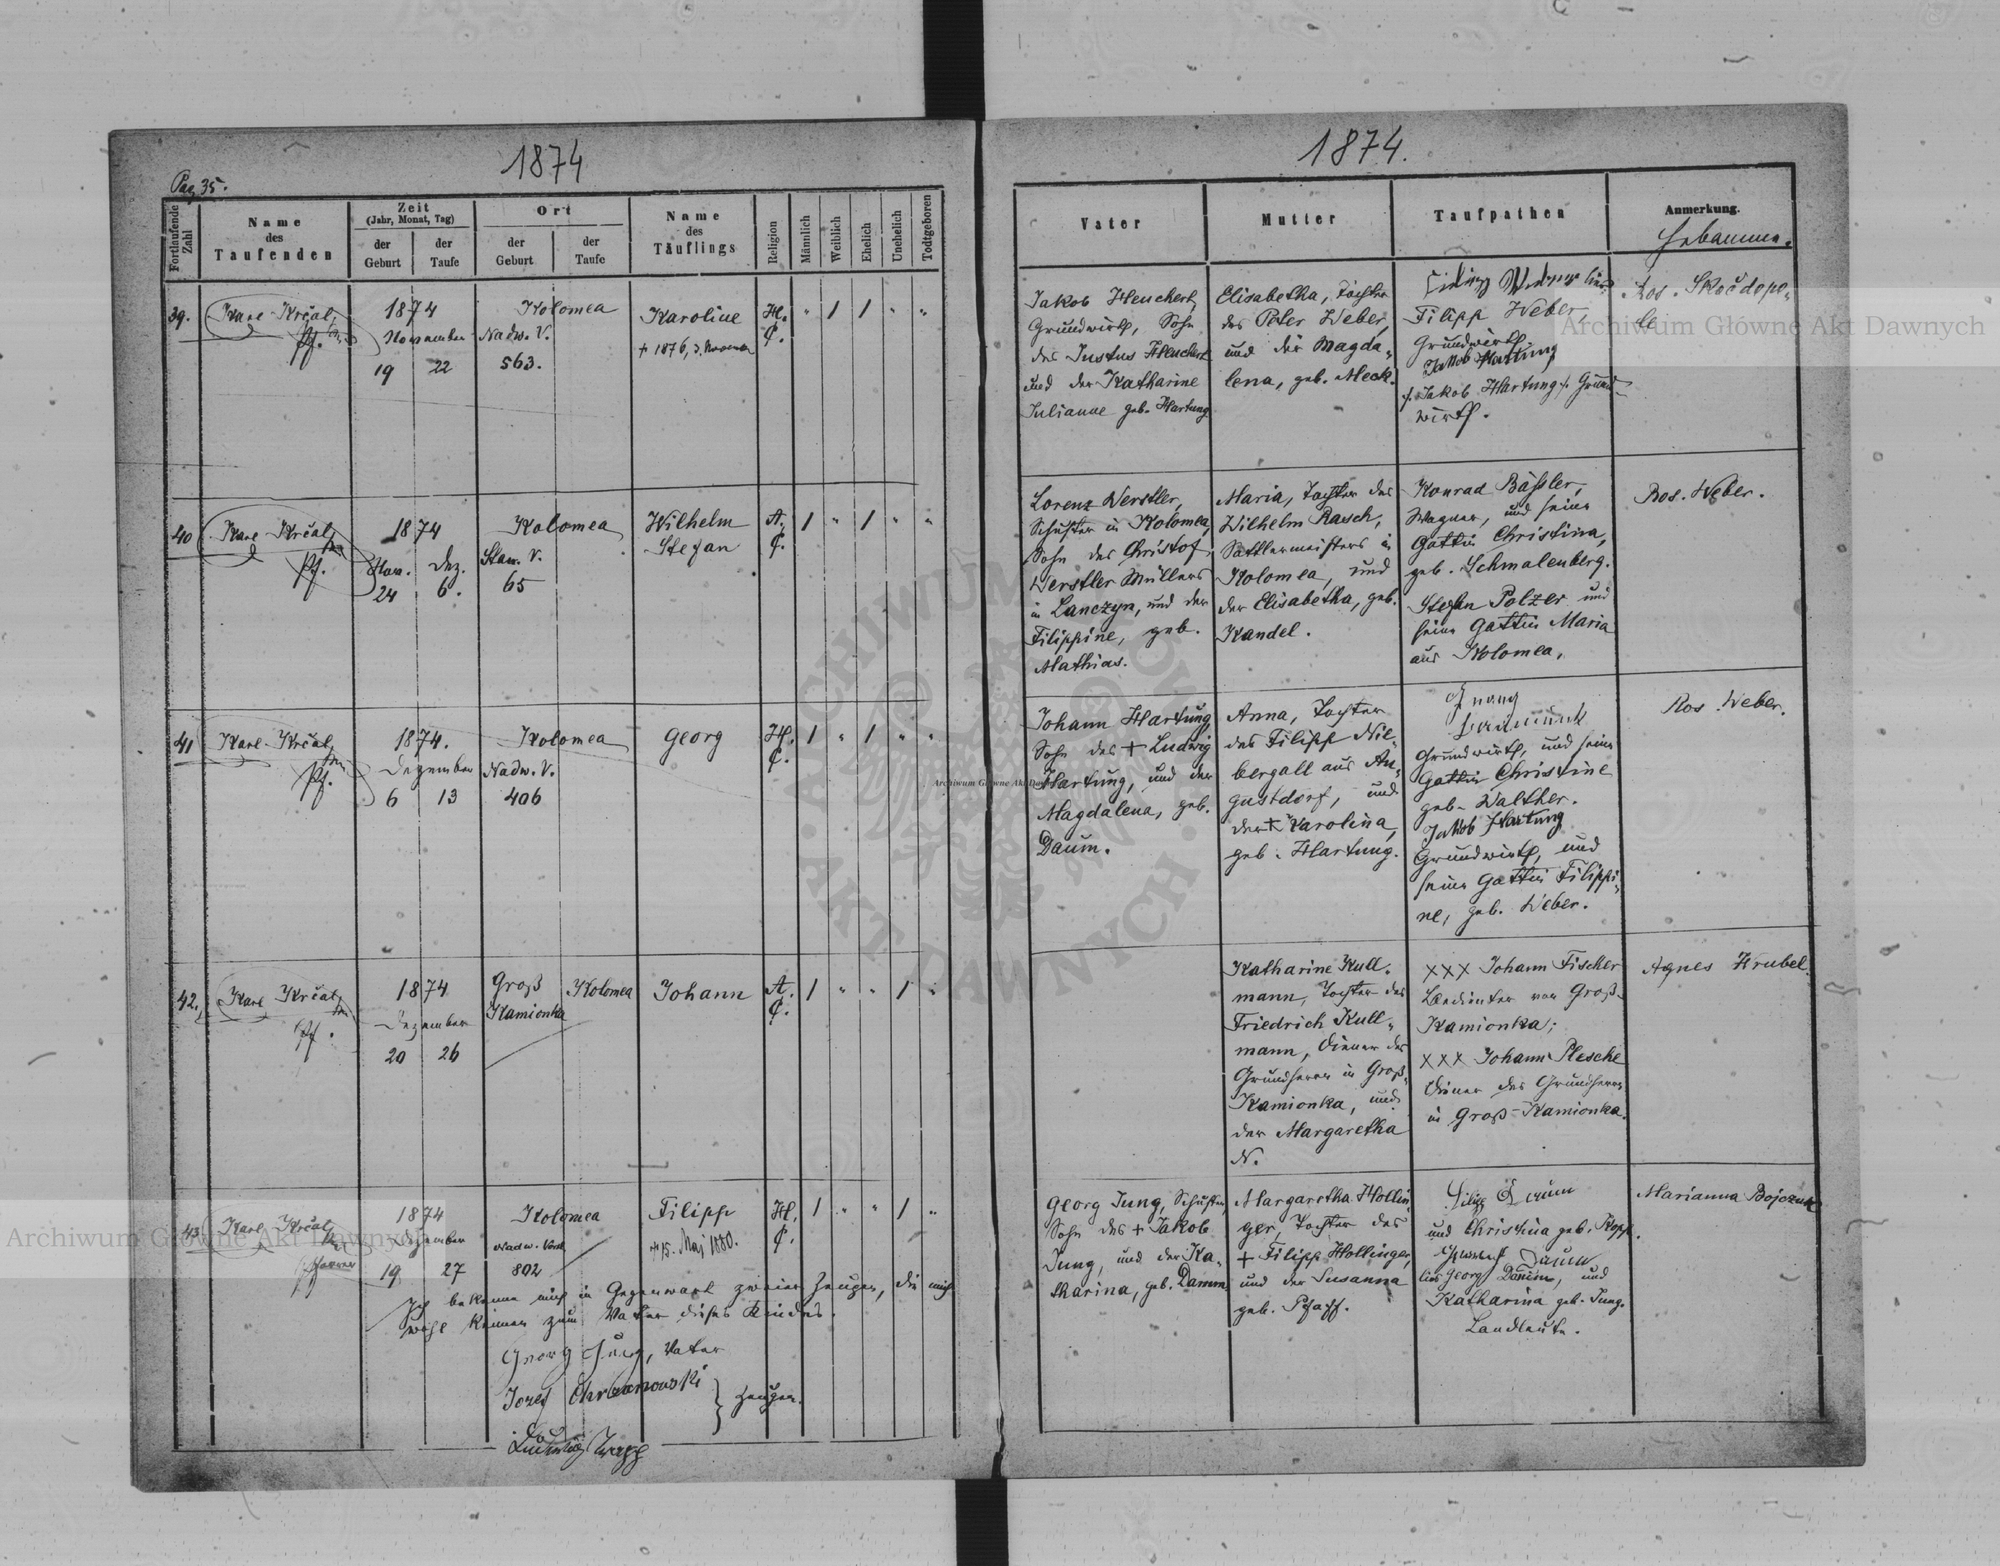 1874
1874.
Pag 35.
Fortlaufende Zahl
Name des Taufenden
Zeit (Jahr, Monat, Tag)
der Geburt
der Taufe
Ort
der Geburt
der Taufe
Name des Täuflings
Religion
Männlich
Weiblich
Ehelich
Unehelich
Todtgeboren
Vater
Mutter
Taufpathen
Anmerkung.
Hebamme.
39.
Karl Krčal,
Pf.
1874
November
19 22
Kolomea
Nadw. V.
563.
Karoline
+ 1876, 3. November
H. C.
" 1 1 " "
Jakob Heuchert,
Grundwirth, Sohn
des Justus Heuchert
und der Katharine
Julianne geb. Hartung
Elisabetha, Tochter
des Peter Weber,
und der Magda-
lena, geb. Meck.
Filipp Weber,
Grundwirth.
Jakob Hartung
/. Jakob Hartung ./. Grund-
wirth.
Ros. Skočdopo-
le
40
Karl Krčal,
Pf.
1874
Nov. Dez.
24 6.
Kolomea
Stan. V.
65
Wilhelm
Stefan
A. C.
1 " 1 " "
Lorenz Werstler,
Schuster in Kolomea,
Sohn des Christof
Werstler Müllers
in Lanczyn, und der
Filippine, geb.
Mathias.
Maria, Tochter des
Wilhelm Rasch,
Sattlermeisters in
Kolomea, und
der Elisabetha, geb.
Kandel.
Konrad Bäßler,
Wagner, und seine
Gattin Christina,
geb. Schmalenberg.
Stefan Polzer und
seine Gattin Maria
aus Kolomea,
Ros. Weber.
41
Karl Krčal,
Pf.
1874.
Dezember
6 13
Kolomea
Nadw. V.
406
Georg
H. C.
1 " 1 " "
Johann Hartung,
Sohn des + Ludwig
Hartung, und der
Magdalena, geb.
Daum.
Anna, Tochter
des Filipp Nie-
bergall aus Au-
gustdorf, und
der + Karolina,
geb. Hartung.
Grundwirth, und seine
Gattin Christine
geb. Walther.
Jakob Hartung
Grundwirth, und
seine Gattin Filippi-
ne, geb. Weber.
Ros. Weber.
42.
Karl Krčal,
Pf.
1874
Dezember
20 26
Groß
Kamionka
Kolomea
Johann
A. C.
1 " " 1 "
Katharine Kull-
mann, Tochter des
Friedrich Kull-
mann, Diener des
Grundherrn in Groß-
Kamionka, und
der Margaretha
N.
XXX Johann Fischer
Bedienter von Groß-
Kamionka;
XXX Johann Plesche
Diener des Grundherrn
in Groß-Kamionka.
Agnes Hrubel.
43
Karl Krčal,
Pfarrer
1874
Dezember
19 27
Kolomea
Nadw. Vorst.
802
Filipp
+ 15. Maj 1880.
H. C.
1 " " 1 "
Georg Jung, Schuster,
Sohn des + Jakob
Jung, und der Ka-
tharina, geb. Damm
Margaretha Hollin-
ger, Tochter des
+ Filipp Hollinger,
und der Susanna
geb. Pfaff.
Filipp Daum
und Christina geb. Kopp.
Georg Daum, und
Katharina geb. Jung.
Landleute.
Marianna Bojczuk
Ich bekenne mich in Gegenwart zweier Zeugen, die mich
wohl kennen zum Vater dieses Kindes.
Georg Jung, Vater
Jozef Chrzanowski
Zeugen.
Archiwum Główne Akt Dawnych
Archiwum Główne Akt Dawnych
Archiwum Główne Akt Dawnych
ARCHIWUM GŁÓWNE AKT DAWNYCH